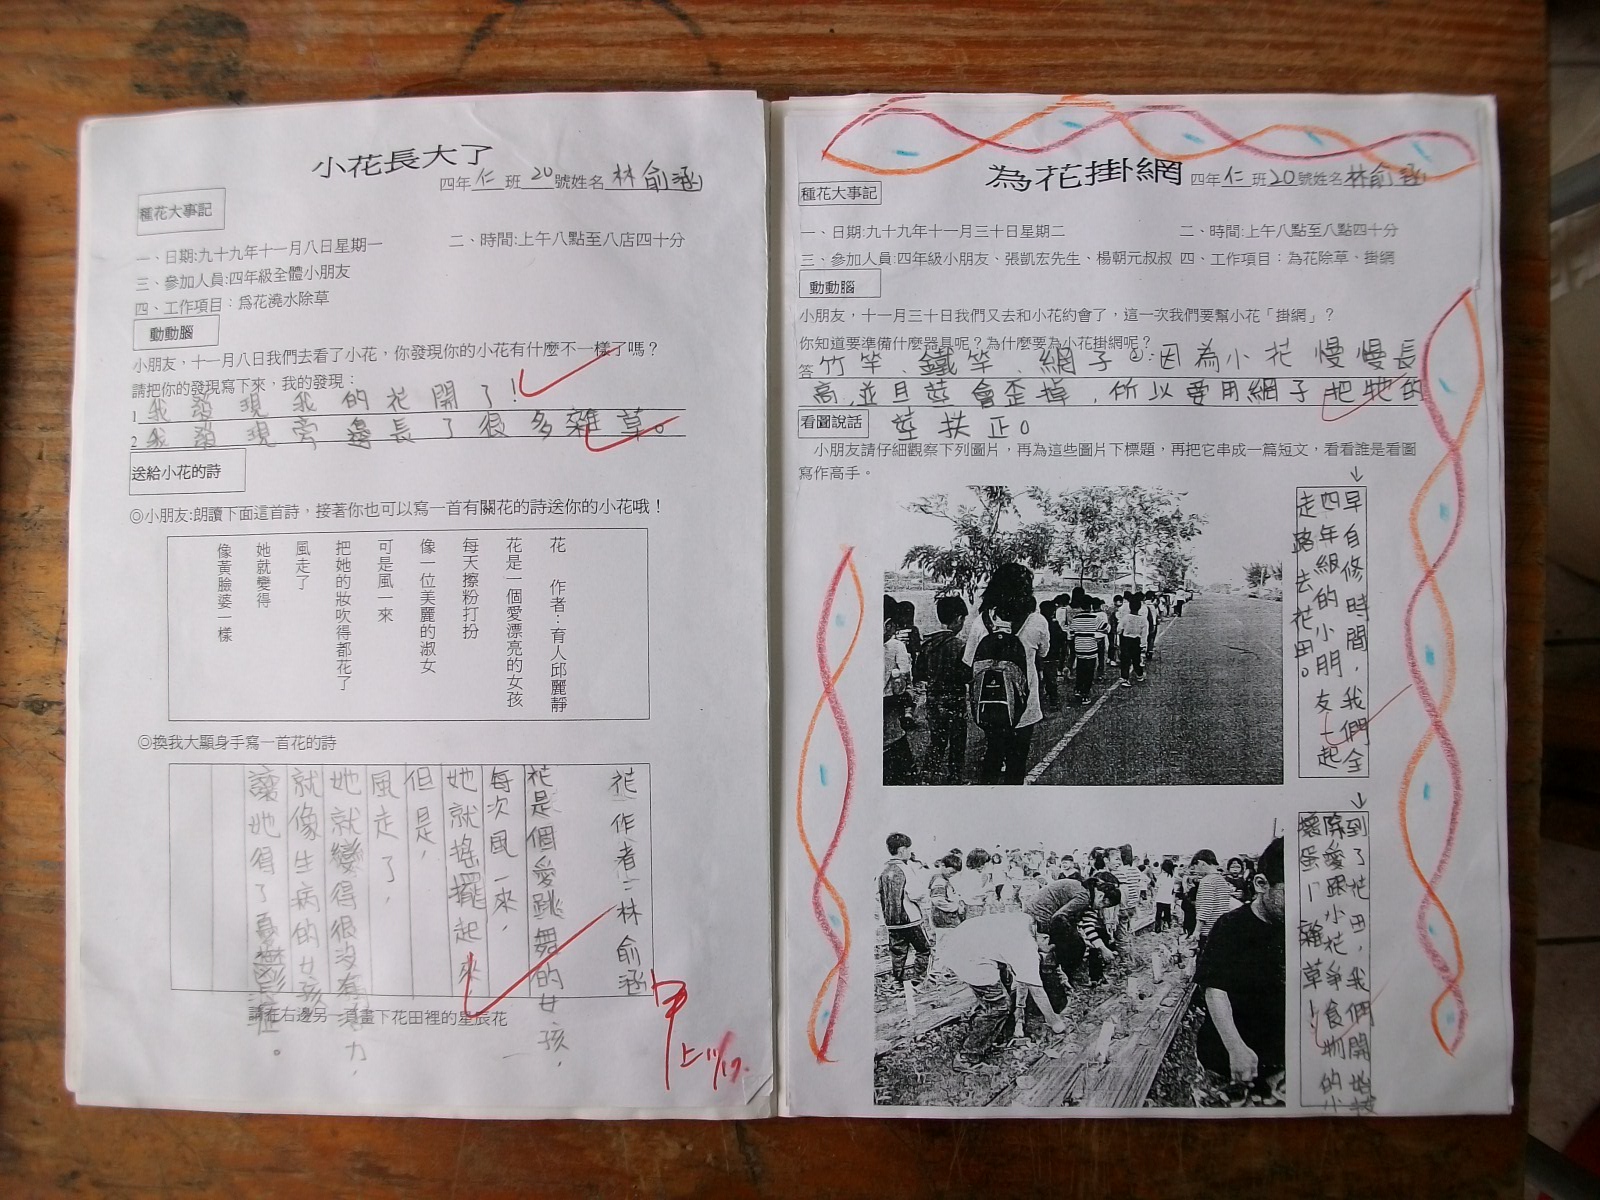 小花長大了
四年仁班20號姓名林俞涵
種花大事記
一、日期:九十九年十一月八日星期一
二、時間:上午八點至八店四十分
三、參加人員:四年級全體小朋友
四、工作項目：為花澆水除草
動動腦
小朋友，十一月八日我們去看了小花，你發現你的小花有什麼不一樣了嗎？
請把你的發現寫下來，我的發現：
1 我發現我的花開了!
2 我發現旁邊長了很多雜草。
送給小花的詩
◎小朋友:朗讀下面這首詩，接著你也可以寫一首有關花的詩送你的小花哦！
花 作者：育人邱麗靜
花是一個愛漂亮的女孩
每天擦粉打扮
像一位美麗的淑女
可是風一來
把她的妝吹得都花了
風走了
她就變得
像黃臉婆一樣
◎換我大顯身手寫一首花的詩
花 作者：林俞涵
花是個愛跳舞的女孩，
每次風一來，
她就搖擺起來
但是，
風走了，
她就變得很沒有活力，
就像生病的女孩
讓她得了憂鬱症。
請在右邊另一頁畫下花田裡的星辰花
甲上 11/17.
為花掛網
四年仁班20號姓名林俞涵
種花大事記
一、日期:九十九年十一月三十日星期二
二、時間:上午八點至八點四十分
三、參加人員:四年級小朋友、張凱宏先生、楊朝元叔叔 四、工作項目：為花除草、掛網
動動腦
小朋友，十一月三十日我們又去和小花約會了，這一次我們要幫小花「掛網」？
你知道要準備什麼器具呢？為什麼要為小花掛網呢？
答竹竿、鐵竿、網子②:因為小花慢慢長
高,並且莖會歪掉,所以要用網子把牠的
莖扶正。
看圖說話
小朋友請仔細觀察下列圖片，再為這些圖片下標題，再把它串成一篇短文，看看誰是看圖
寫作高手。
早自修時間，我們全
四年級的小朋友一起
走路去花田。
到了花田，我們開始拔
除愛跟小花爭食物的小
壞蛋「雜草」